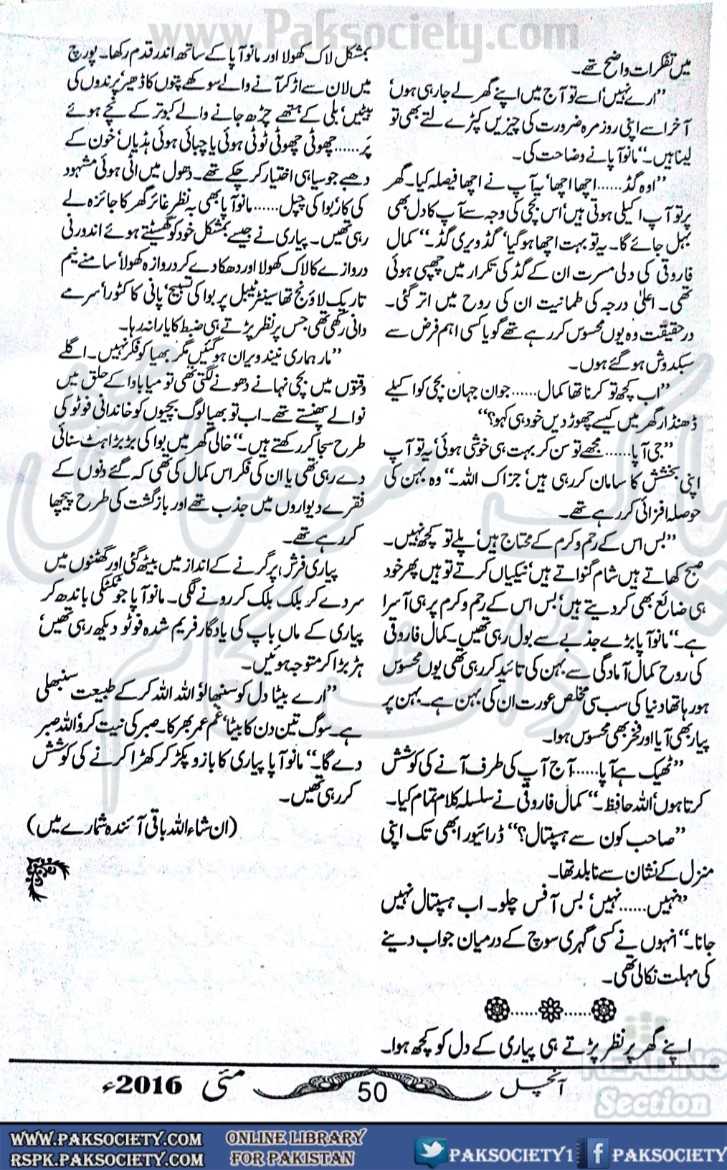 www.Paksociety.com
میں تفکرات واضح تھے۔
”ارے نہیں‘ اسے تو آج میں اپنے گھر لے جا رہی ہوں‘
آخر اسے اپنی روز مرہ ضرورت کی چیزیں کپڑے لتے بھی تو
لینا ہیں۔“ مانو آپا نے وضاحت کی۔
”اوہ گڈ...... اچھا اچھا‘ یہ آپ نے اچھا فیصلہ کیا۔ گھر
پر تو آپ اکیلی ہوتی ہیں‘ اس بچی کی وجہ سے آپ کا دل بھی
بہل جائے گا۔ یہ تو بہت اچھا ہوگیا‘ گڈ ویری گڈ۔“ کمال
فاروقی کی دلی مسرت ان کے گڈ کی تکرار میں چھپی ہوئی
تھی۔ اعلیٰ درجہ کی طمانیت ان کی روح میں اتر گئی۔
درحقیقت وہ یوں محسوس کر رہے تھے گویا کسی اہم فرض سے
سبکدوش ہو گئے ہوں۔
”اب کچھ تو کرنا تھا کمال...... جوان جہان بچی کو اکیلے
ڈھنڈار گھر میں کیسے چھوڑ دیں خود ہی کہو؟“
”جی آپا...... مجھے تو سن کر بہت ہی خوشی ہوئی‘ یہ تو آپ
اپنی بخشش کا سامان کر رہی ہیں‘ جزاک اللہ۔“ وہ بہن کی
حوصلہ افزائی کر رہے تھے۔
”بس اس کے رحم و کرم کے محتاج ہیں‘ پلے تو کچھ نہیں۔
صبح کھاتے ہیں شام گنواتے ہیں‘ نیکیاں کرتے تو ہیں پھر خود
ہی ضائع بھی کر دیتے ہیں‘ بس اس کے رحم و کرم پر ہی آسرا
ہے۔“ مانو آپا بڑے جذبے سے بول رہی تھیں۔ کمال فاروقی
کی روح کمال آمادگی سے بہن کی تائید کر رہی تھی یوں محسوس
ہو رہا تھا دنیا کی سب سی مخلص عورت ان کی بہن ہے۔ بہن پر
پیار بھی آیا اور فخر بھی محسوس ہوا۔
”ٹھیک ہے آپا...... آج آپ کی طرف آنے کی کوشش
کرتا ہوں‘ اللہ حافظ۔“ کمال فاروقی نے سلسلہ کلام تمام کیا۔
”صاحب کون سے ہسپتال؟“ ڈرائیور ابھی تک اپنی
منزل کے نشان سے نابلد تھا۔
”نہیں...... نہیں‘ بس آفس چلو۔ اب ہسپتال نہیں
جانا۔“ انہوں نے کسی گہری سوچ کے درمیان جواب دینے
کی مہلت نکالی تھی۔
اپنے گھر پر نظر پڑتے ہی پیاری کے دل کو کچھ ہوا۔
بمشکل لاک کھولا اور مانو آپا کے ساتھ اندر قدم رکھا۔ پورچ
میں لان سے اڑ کر آنے والے سوکھے پتوں کا ڈھیر‘ پرندوں کی
بیٹیں‘ بلی کے ہتھے چڑھ جانے والے کبوتر کے نچے ہوئے
پر...... چھوٹی چھوٹی ٹوٹی ہوئی یا چبائی ہوئی ہڈیاں‘ خون کے
دھبے جو سیاہی اختیار کر چکے تھے۔ دھول میں اٹی ہوئی مشہود
کی کار‘ بوا کی چپل...... مانو آپا بھی بہ نظر غائر گھر کا جائزہ لے
رہی تھیں۔ پیاری نے جیسے بمشکل خود کو گھسیٹتے ہوئے اندرونی
دروازے کا لاک کھولا اور دھکا دے کر دروازہ کھولا‘ سامنے نیم
تاریک لاؤنج تھا سینٹر ٹیبل پر بوا کی تسبیح‘ پانی کا کٹورا‘ سرمے
دانی رکھی تھی جس پر نظر پڑتے ہی ضبط کا یارا نہ رہا۔
”مار ہماری نیند ویران ہو گئیں مگر بھیا کو فکر نہیں۔ اگلے
وقتوں میں بچی نہانے دھونے لگتی تھی تو میا باوا کے حلق میں
نوالے پھنستے تھے۔ اب تو بھیا لوگ بچیوں کو خاندانی فوٹو کی
طرح سجا کر رکھتے ہیں۔“ خالی گھر میں بوا کی بڑبڑاہٹ سنائی
دے رہی تھی یا ان کی فکر اس کمال کی تھی کہ گئے دنوں کے
فقرے دیواروں میں جذب تھے اور بازگشت کی طرح پیچھا
کر رہے تھے۔
پیاری فرش پر گرنے کے انداز میں بیٹھ گئی اور گھٹنوں میں
سر دے کر بلک بلک کر رونے لگی۔ مانو آپا جو ٹکٹکی باندھ کر
پیاری کے ماں باپ کی یادگار فریم شدہ فوٹو دیکھ رہی تھیں‘
ہڑبڑا کر متوجہ ہوئیں۔
”ارے بیٹا دل کو سنبھالو‘ اللہ اللہ کر کے طبیعت سنبھلی
ہے۔ سوگ تین دن کا بیٹا‘ غم عمر بھر کا۔ صبر کی نیت کرو‘ اللہ صبر
دے گا۔“ مانو آپا پیاری کا بازو پکڑ کر کھڑا کرنے کی کوشش
کر رہی تھیں۔
(ان شاء اللہ باقی آئندہ شمارے میں)
آنچل 50 مئی 2016ء
READING
Section
WWW.PAKSOCIETY.COM ONLINE LIBRARY PAKSOCIETY1 PAKSOCIETY
RSPK.PAKSOCIETY.COM FOR PAKISTAN